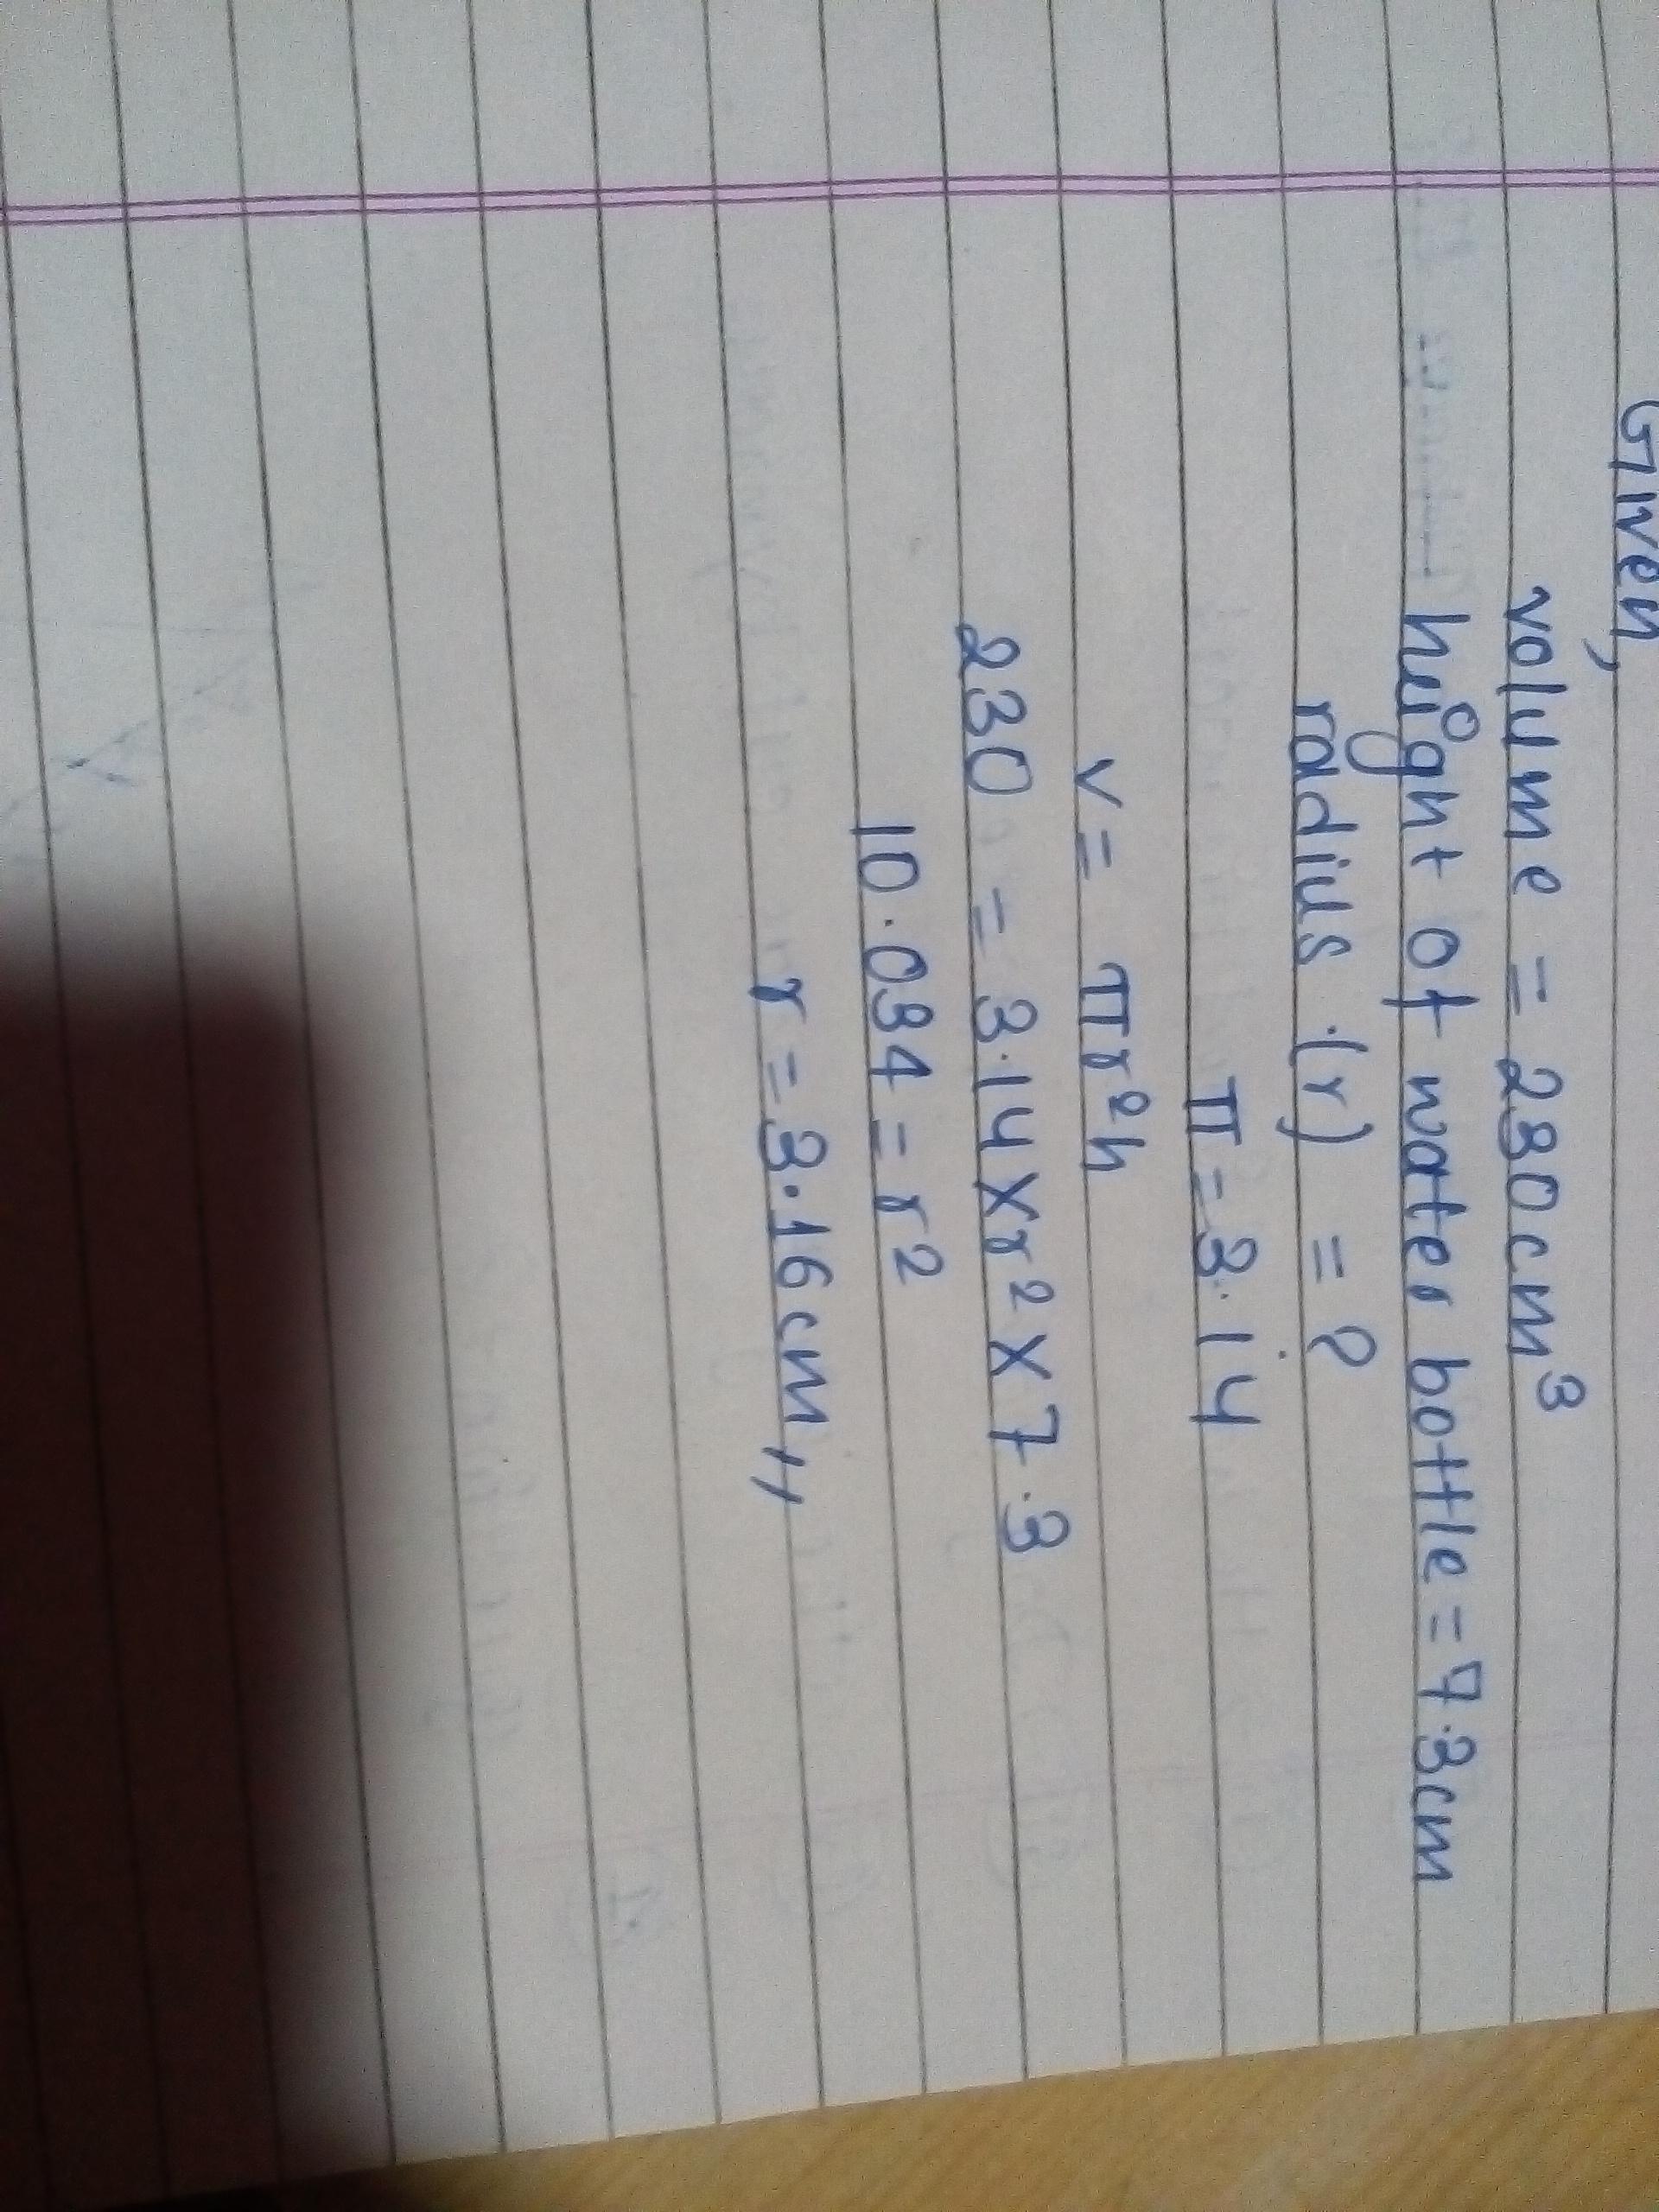 Given,
volume = 230cm³
height of water bottle = 7.3cm
radius (r) = ?
π = 3.14
v = πr²h
230 = 3.14 × r² × 7.3
10.034 = r²
r = 3.16cm,,